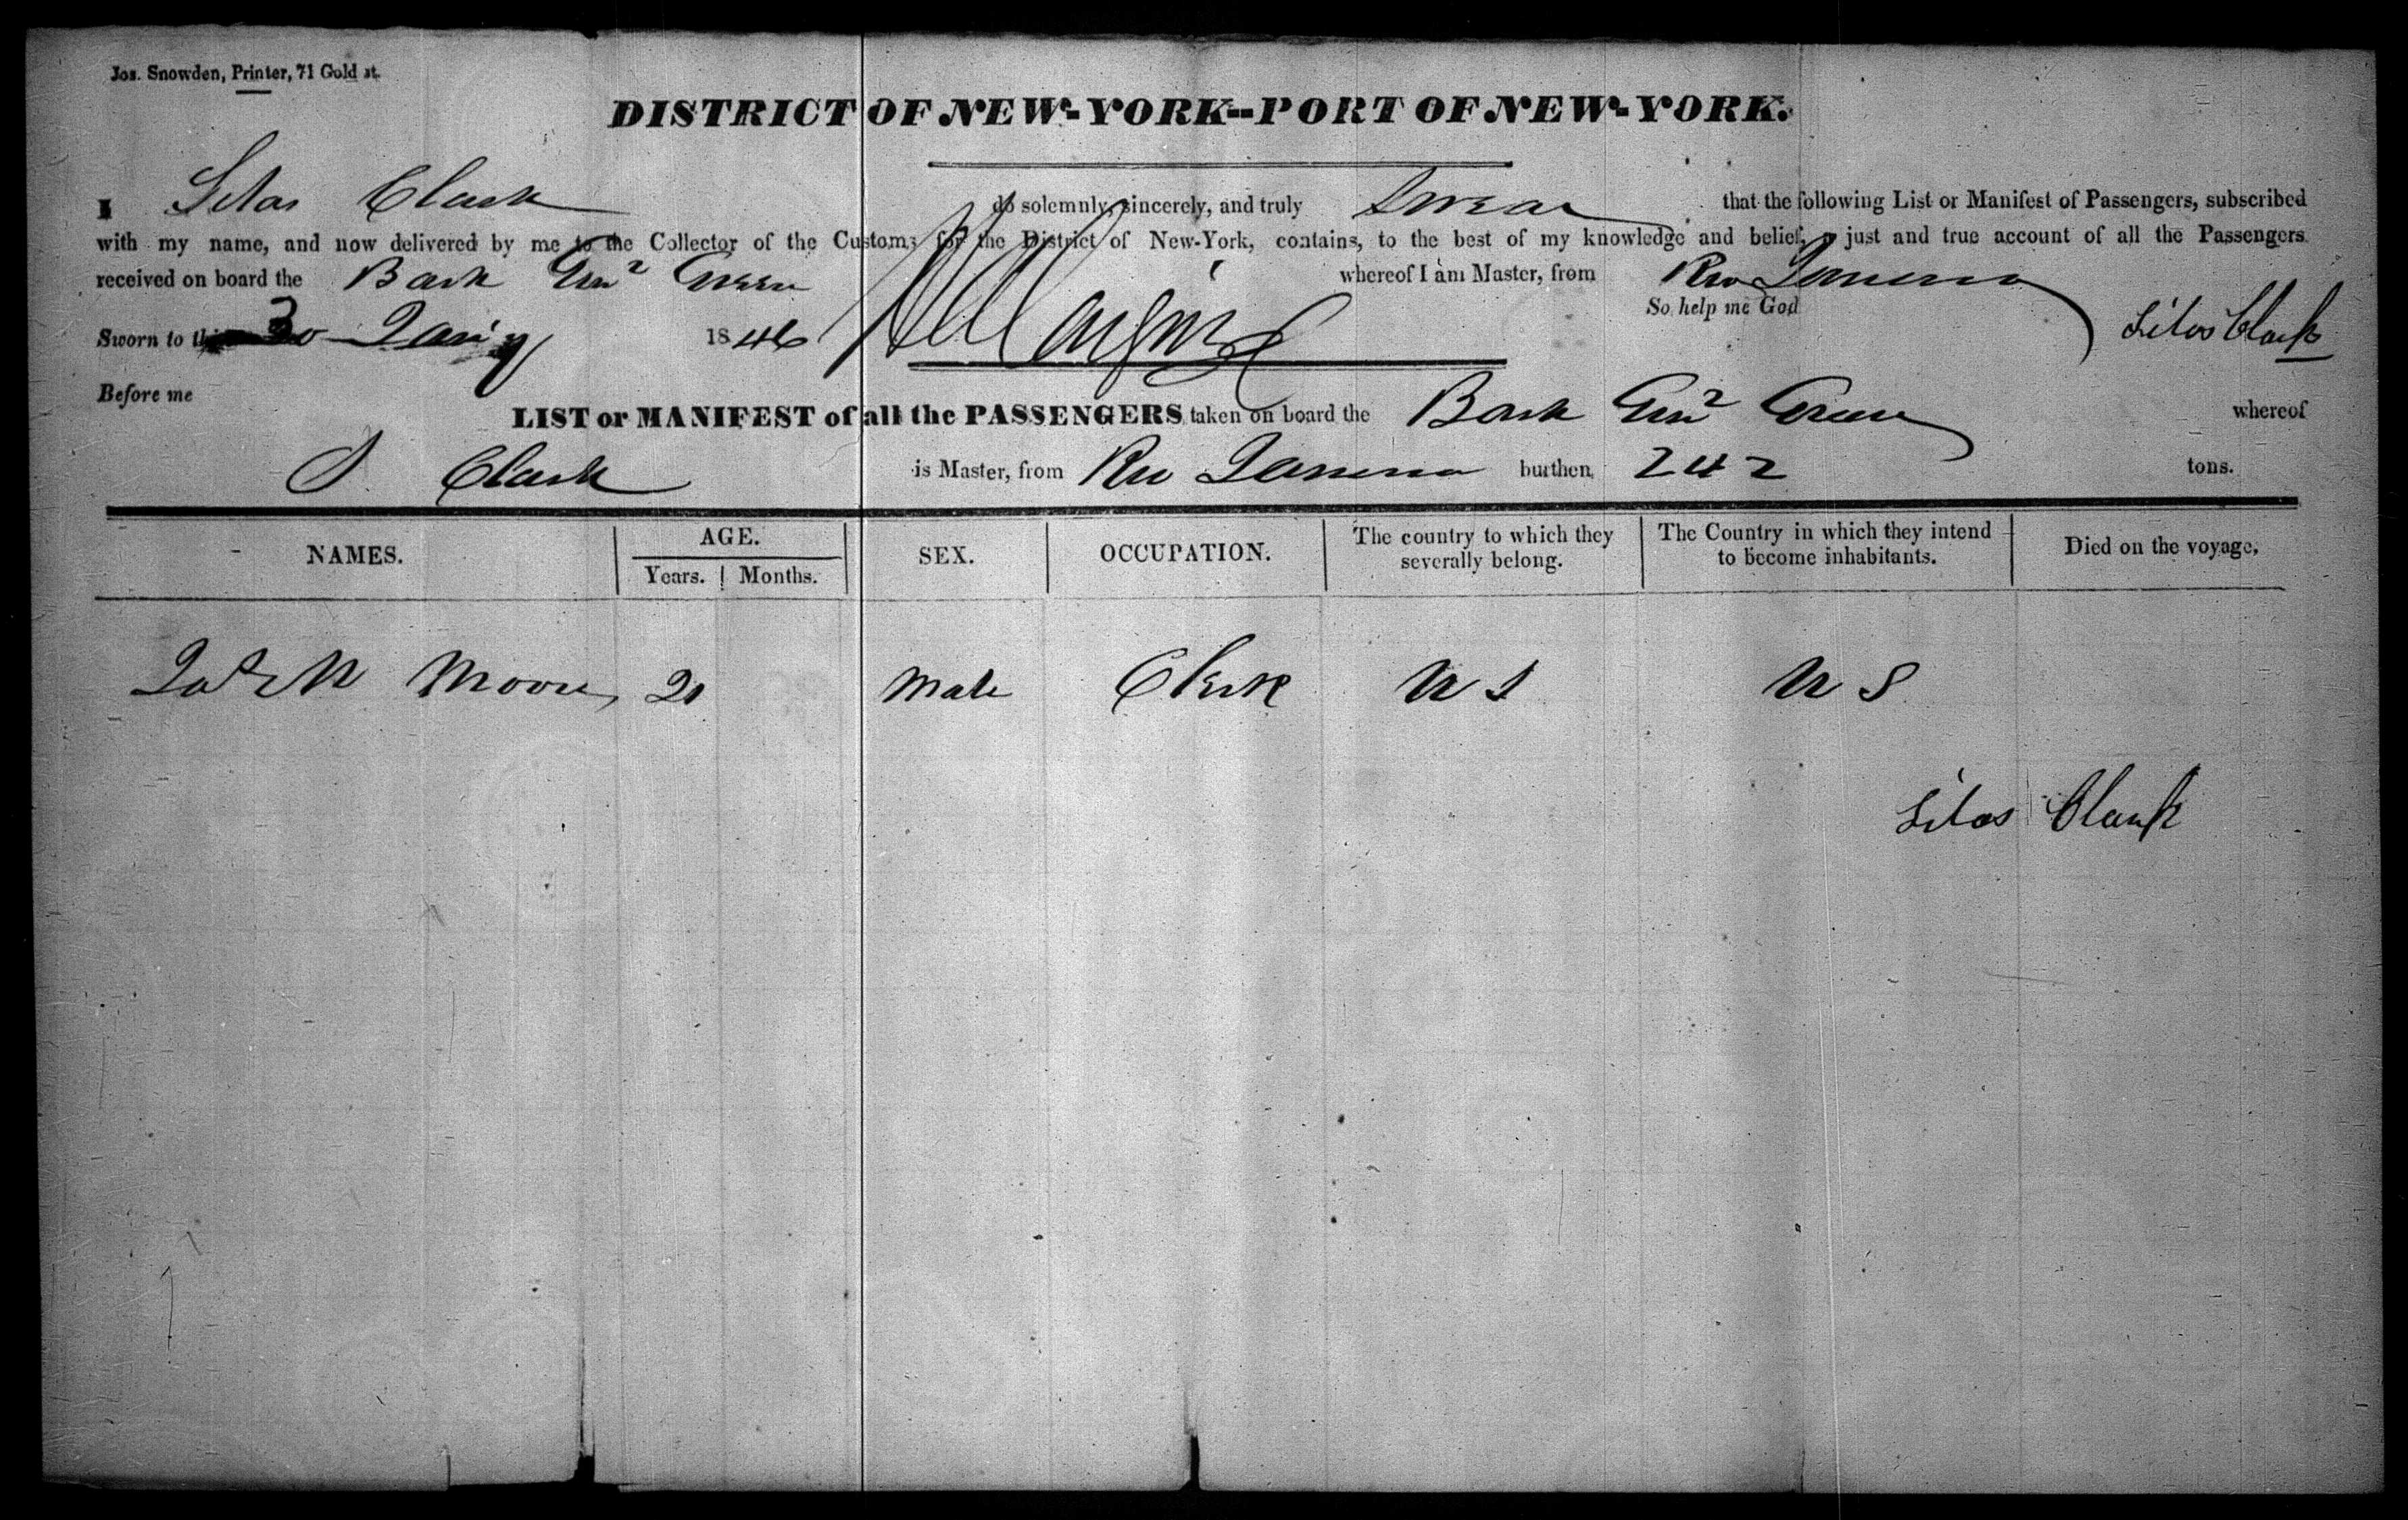 Jos. Snowden, Printer, 71 Gold st.
DISTRICT OF NEW-YORK--PORT OF NEW-YORK.
I Silas Clark do solemnly, sincerely, and truly Swear that the following List or Manifest of Passengers, subscribed
with my name, and now delivered by me to the Collector of the Customs for the District of New-York, contains, to the best of my knowledge and belief, a just and true account of all the Passengers
received on board the Bark Genl Green whereof I am Master, from Rio Janeiro
So help me God
Sworn to this 30 Jany 1846 Silas Clark
Before me
LIST or MANIFEST of all the PASSENGERS taken on board the Bark Genl Green whereof
S Clark is Master, from Rio Janeiro burthen 242 tons.
NAMES. AGE. SEX. OCCUPATION. The country to which they severally belong. The Country in which they intend to become inhabitants. Died on the voyage,
Years. Months.
Moore, 21 Male Clerk U S U S
Silas Clark